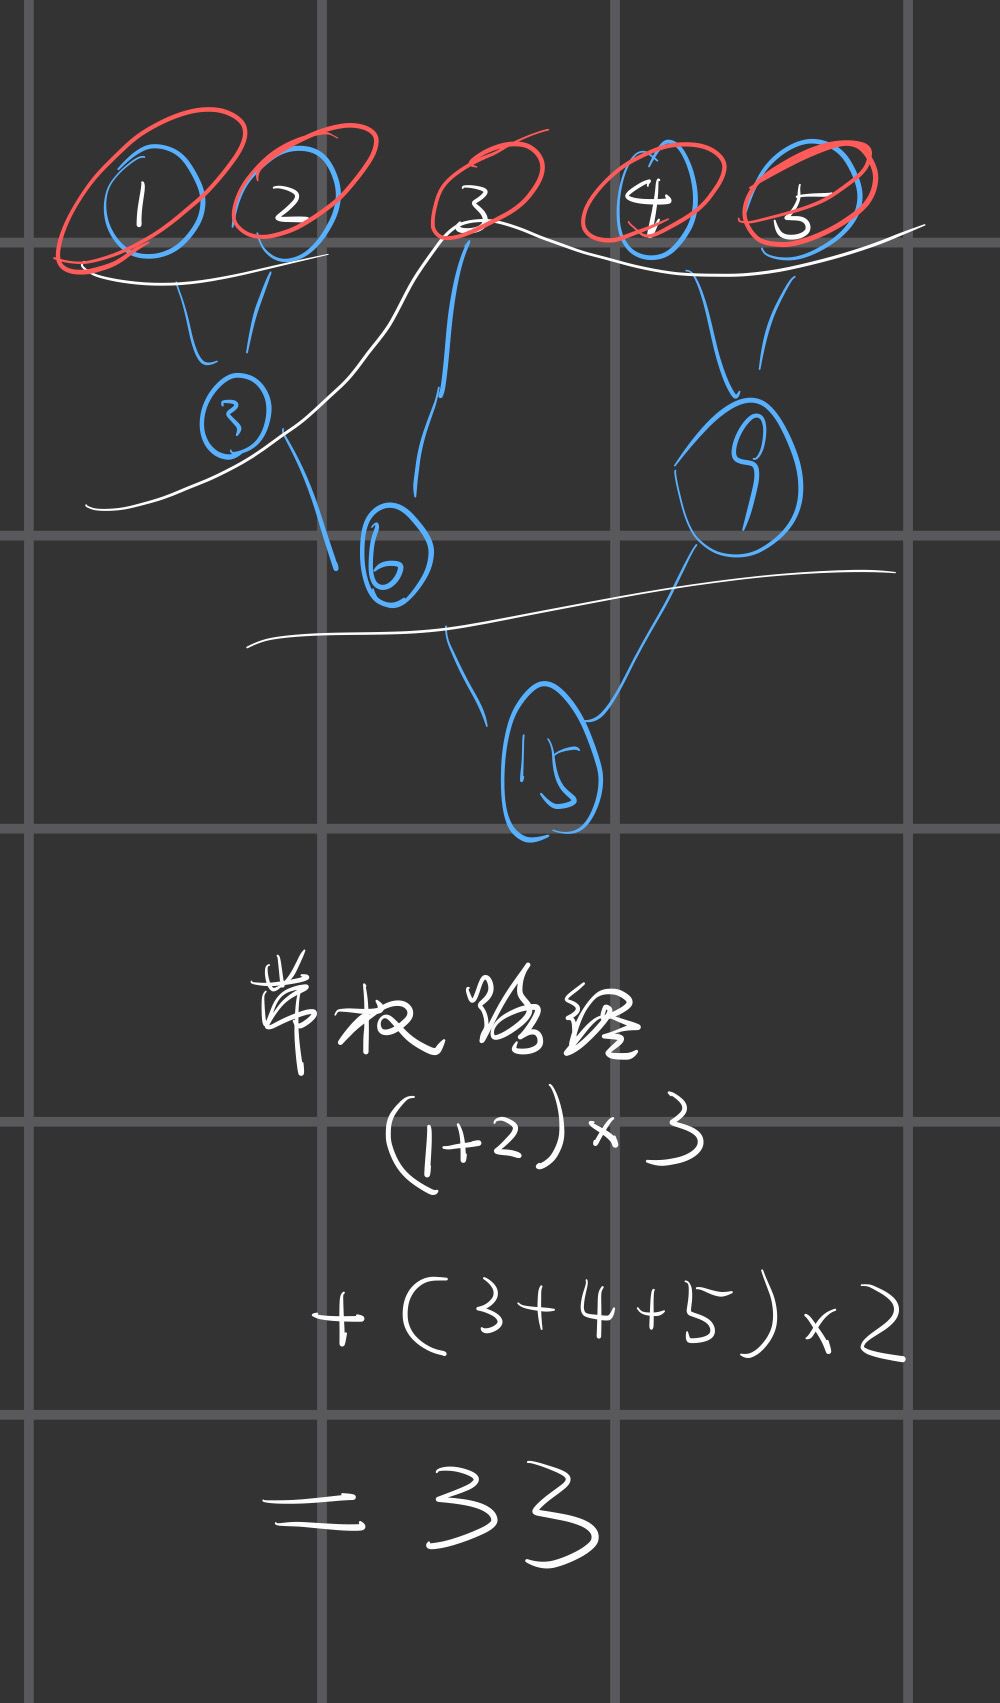 1 2 3 4 5
3
9
6
15
带权路径
(1+2)×3
+(3+4+5)×2
=33